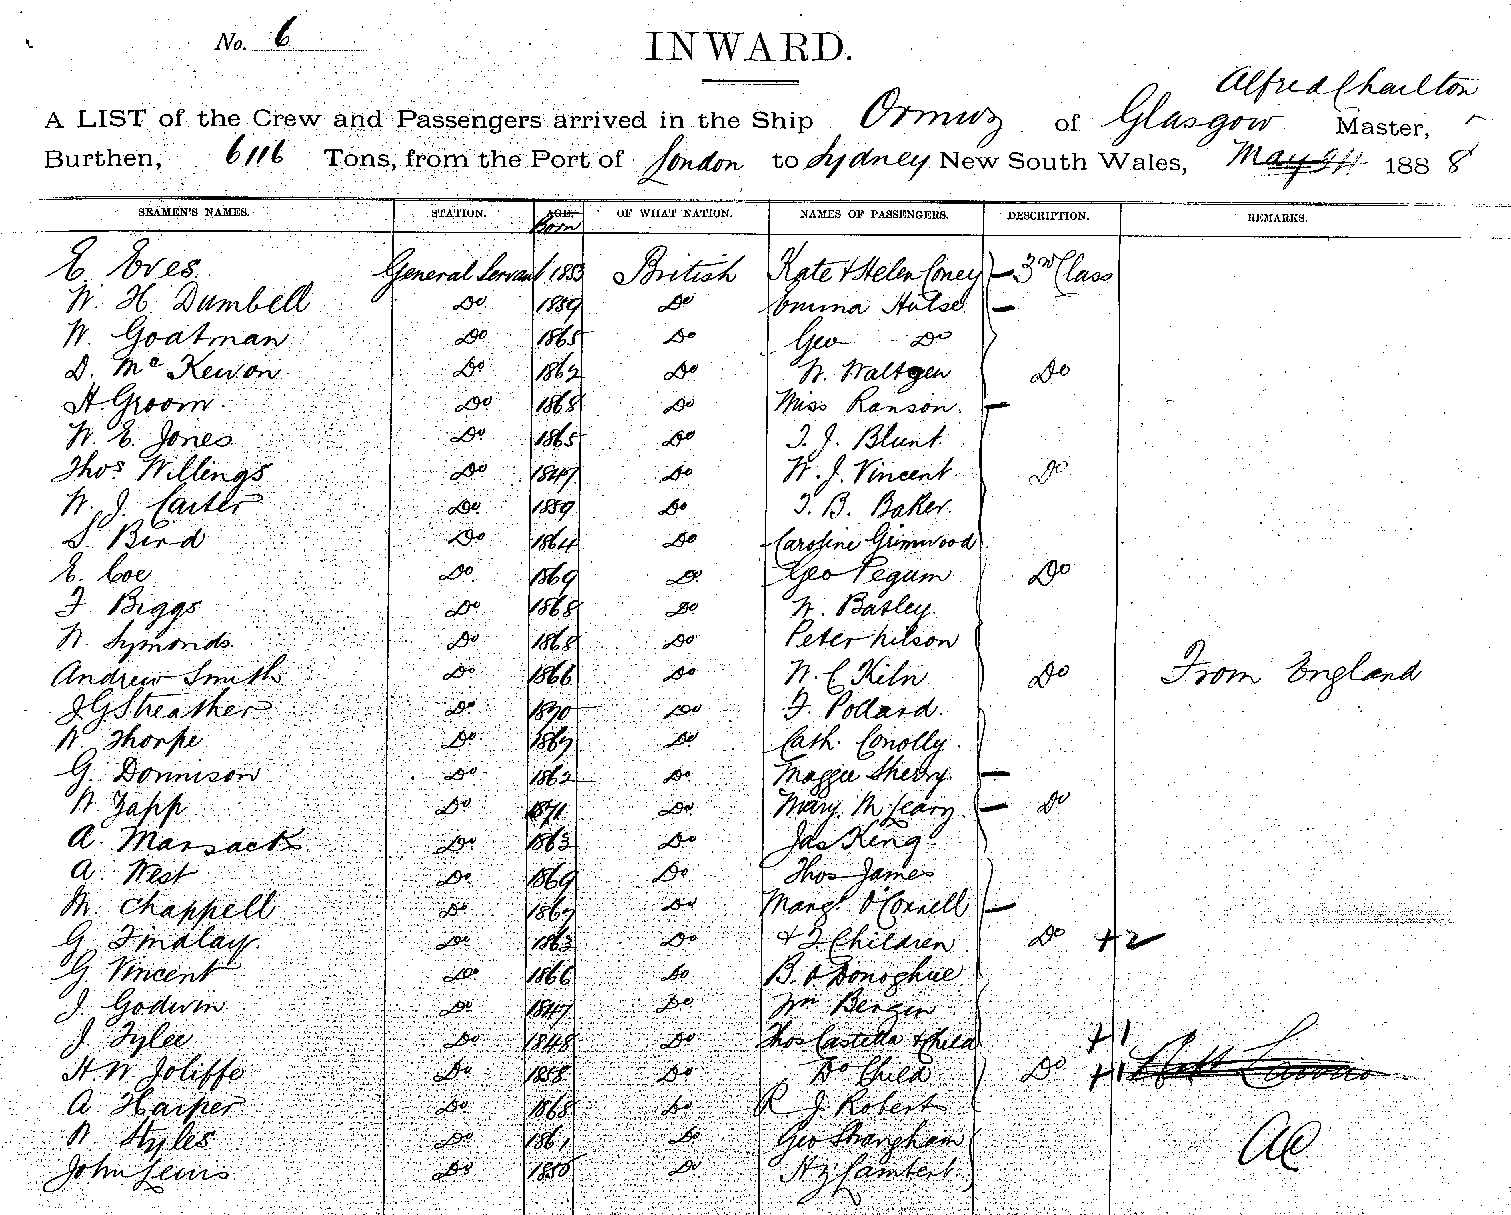 No. 6
INWARD.
Alfred Charlton
A LIST of the Crew and Passengers arrived in the Ship Ormuz of Glasgow Master,
Burthen, 6116 Tons, from the Port of London to Sydney New South Wales, May 1888
SEAMEN'S NAMES. STATION. AGE. Born OF WHAT NATION. NAMES OF PASSENGERS. DESCRIPTION. REMARKS.
E Eves General Servant 1853 British Kate & Helen Coney 3rd Class
W. H Dumbell Do 1859 Do Emma Hulse
W. Goatman Do 1865 Do Geo Do
D. McKewon Do 1862 Do W. Waltgen Do
H Groom Do 1868 Do Miss Ranson
W. E. Jones Do 1865 Do T. J. Blunt
Thos Willings Do 1847 Do W. J. Vincent Do
W. J. Carter Do 1859 Do T. B. Baker
S. Bird Do 1864 Do Caroline Grimwood
E. Coe Do 1869 Do Geo Pegum Do
F Biggs Do 1868 Do W. Batley
W. Symonds Do 1868 Do Peter Wilson
Andrew Smith Do 1866 Do W. C Kiln Do From England
J G Streather Do 1870 Do F. Pollard
W Thorpe Do 1867 Do Cath. Conolly
G. Donnison Do 1862 Do Maggie Sherry
W Zapp Do 1871 Do Mary McLeary Do
A. Marsack Do 1863 Do Jas King
A. West Do 1869 Do Thos James
M. Chappell Do 1867 Do Margt O'Connell
G Findlay Do 1863 Do & 2 Children Do +2
G Vincent Do 1866 Do B. O'Donoghue
J. Godwin Do 1847 Do Wm Bergin
J Tylee Do 1848 Do Thos Castella & Child +1
H. W. Joliffe Do 1858 Do Do Child Do +1
A Harper Do 1868 Do R J. Roberts
W Styles Do 1861 Do Geo Strangham AC
John Lewis Do 1856 Do Hy Lambert